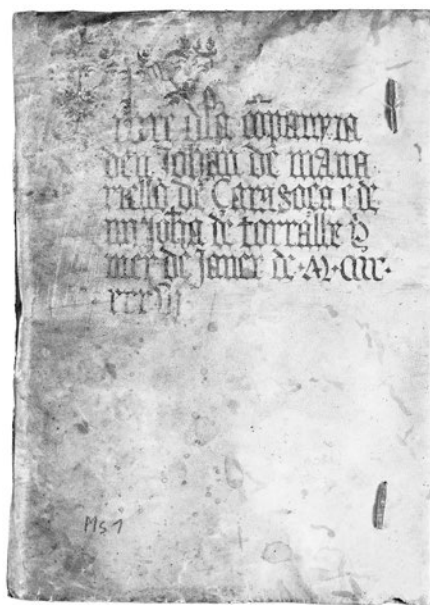 libre dla companyia
den Johan de mana
riello de Caragoça e de
mi Joha de torralbe p
mer de Janer de ·M·CCCC·
xxx
Ms 1